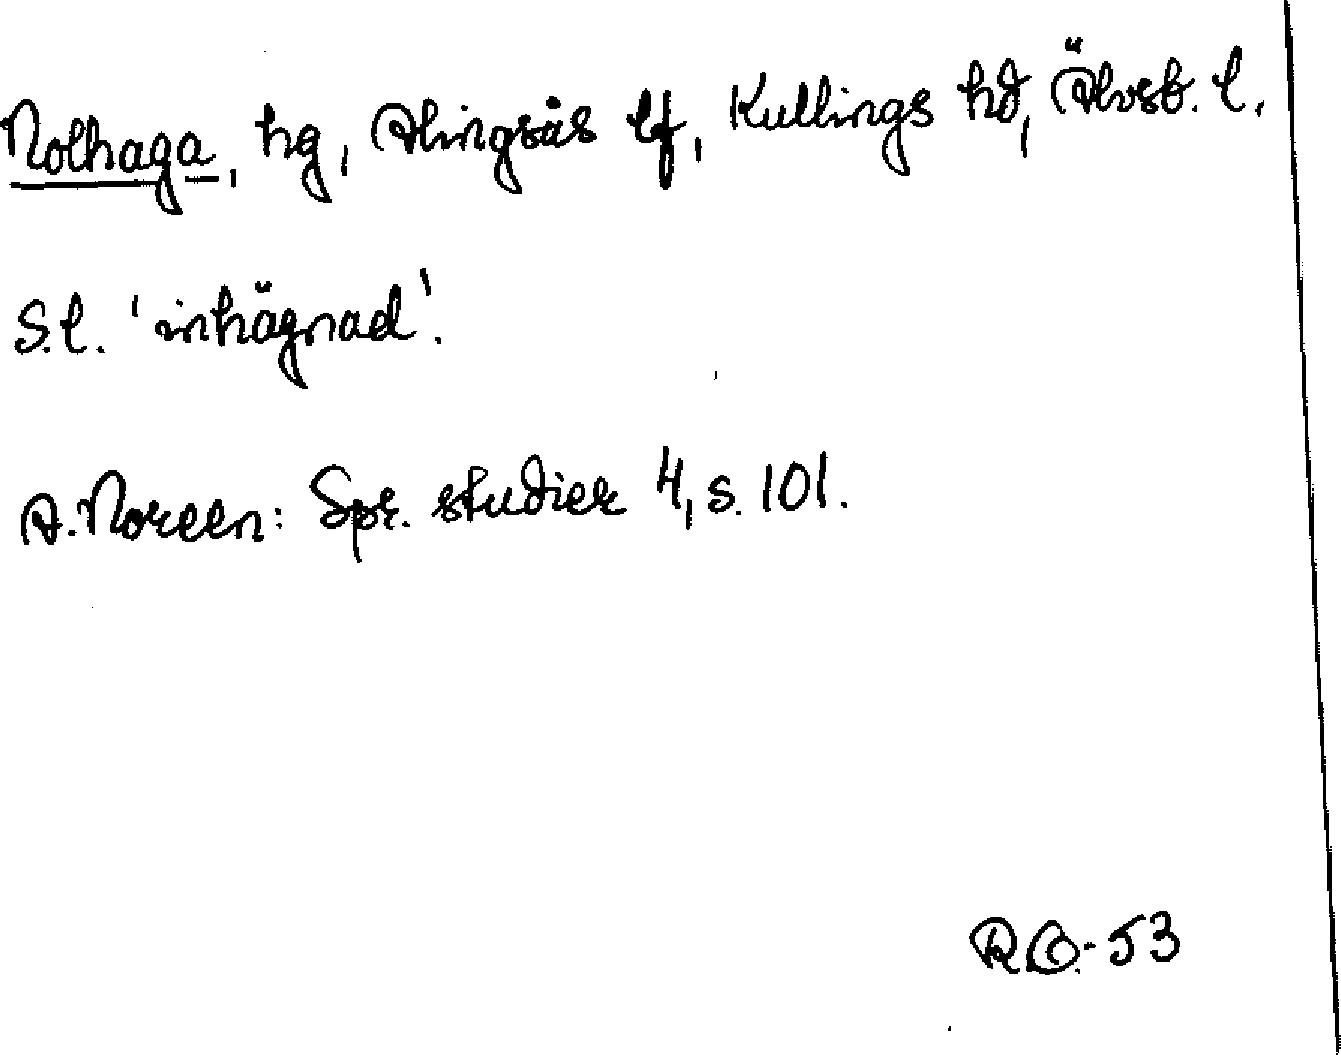 Nolhaga, hg, Alingsås lf, Kullings hd, Älvsb. l.
S.l. 'inhägnad'.
A. Noreen: Spr. studier 4, s. 101.